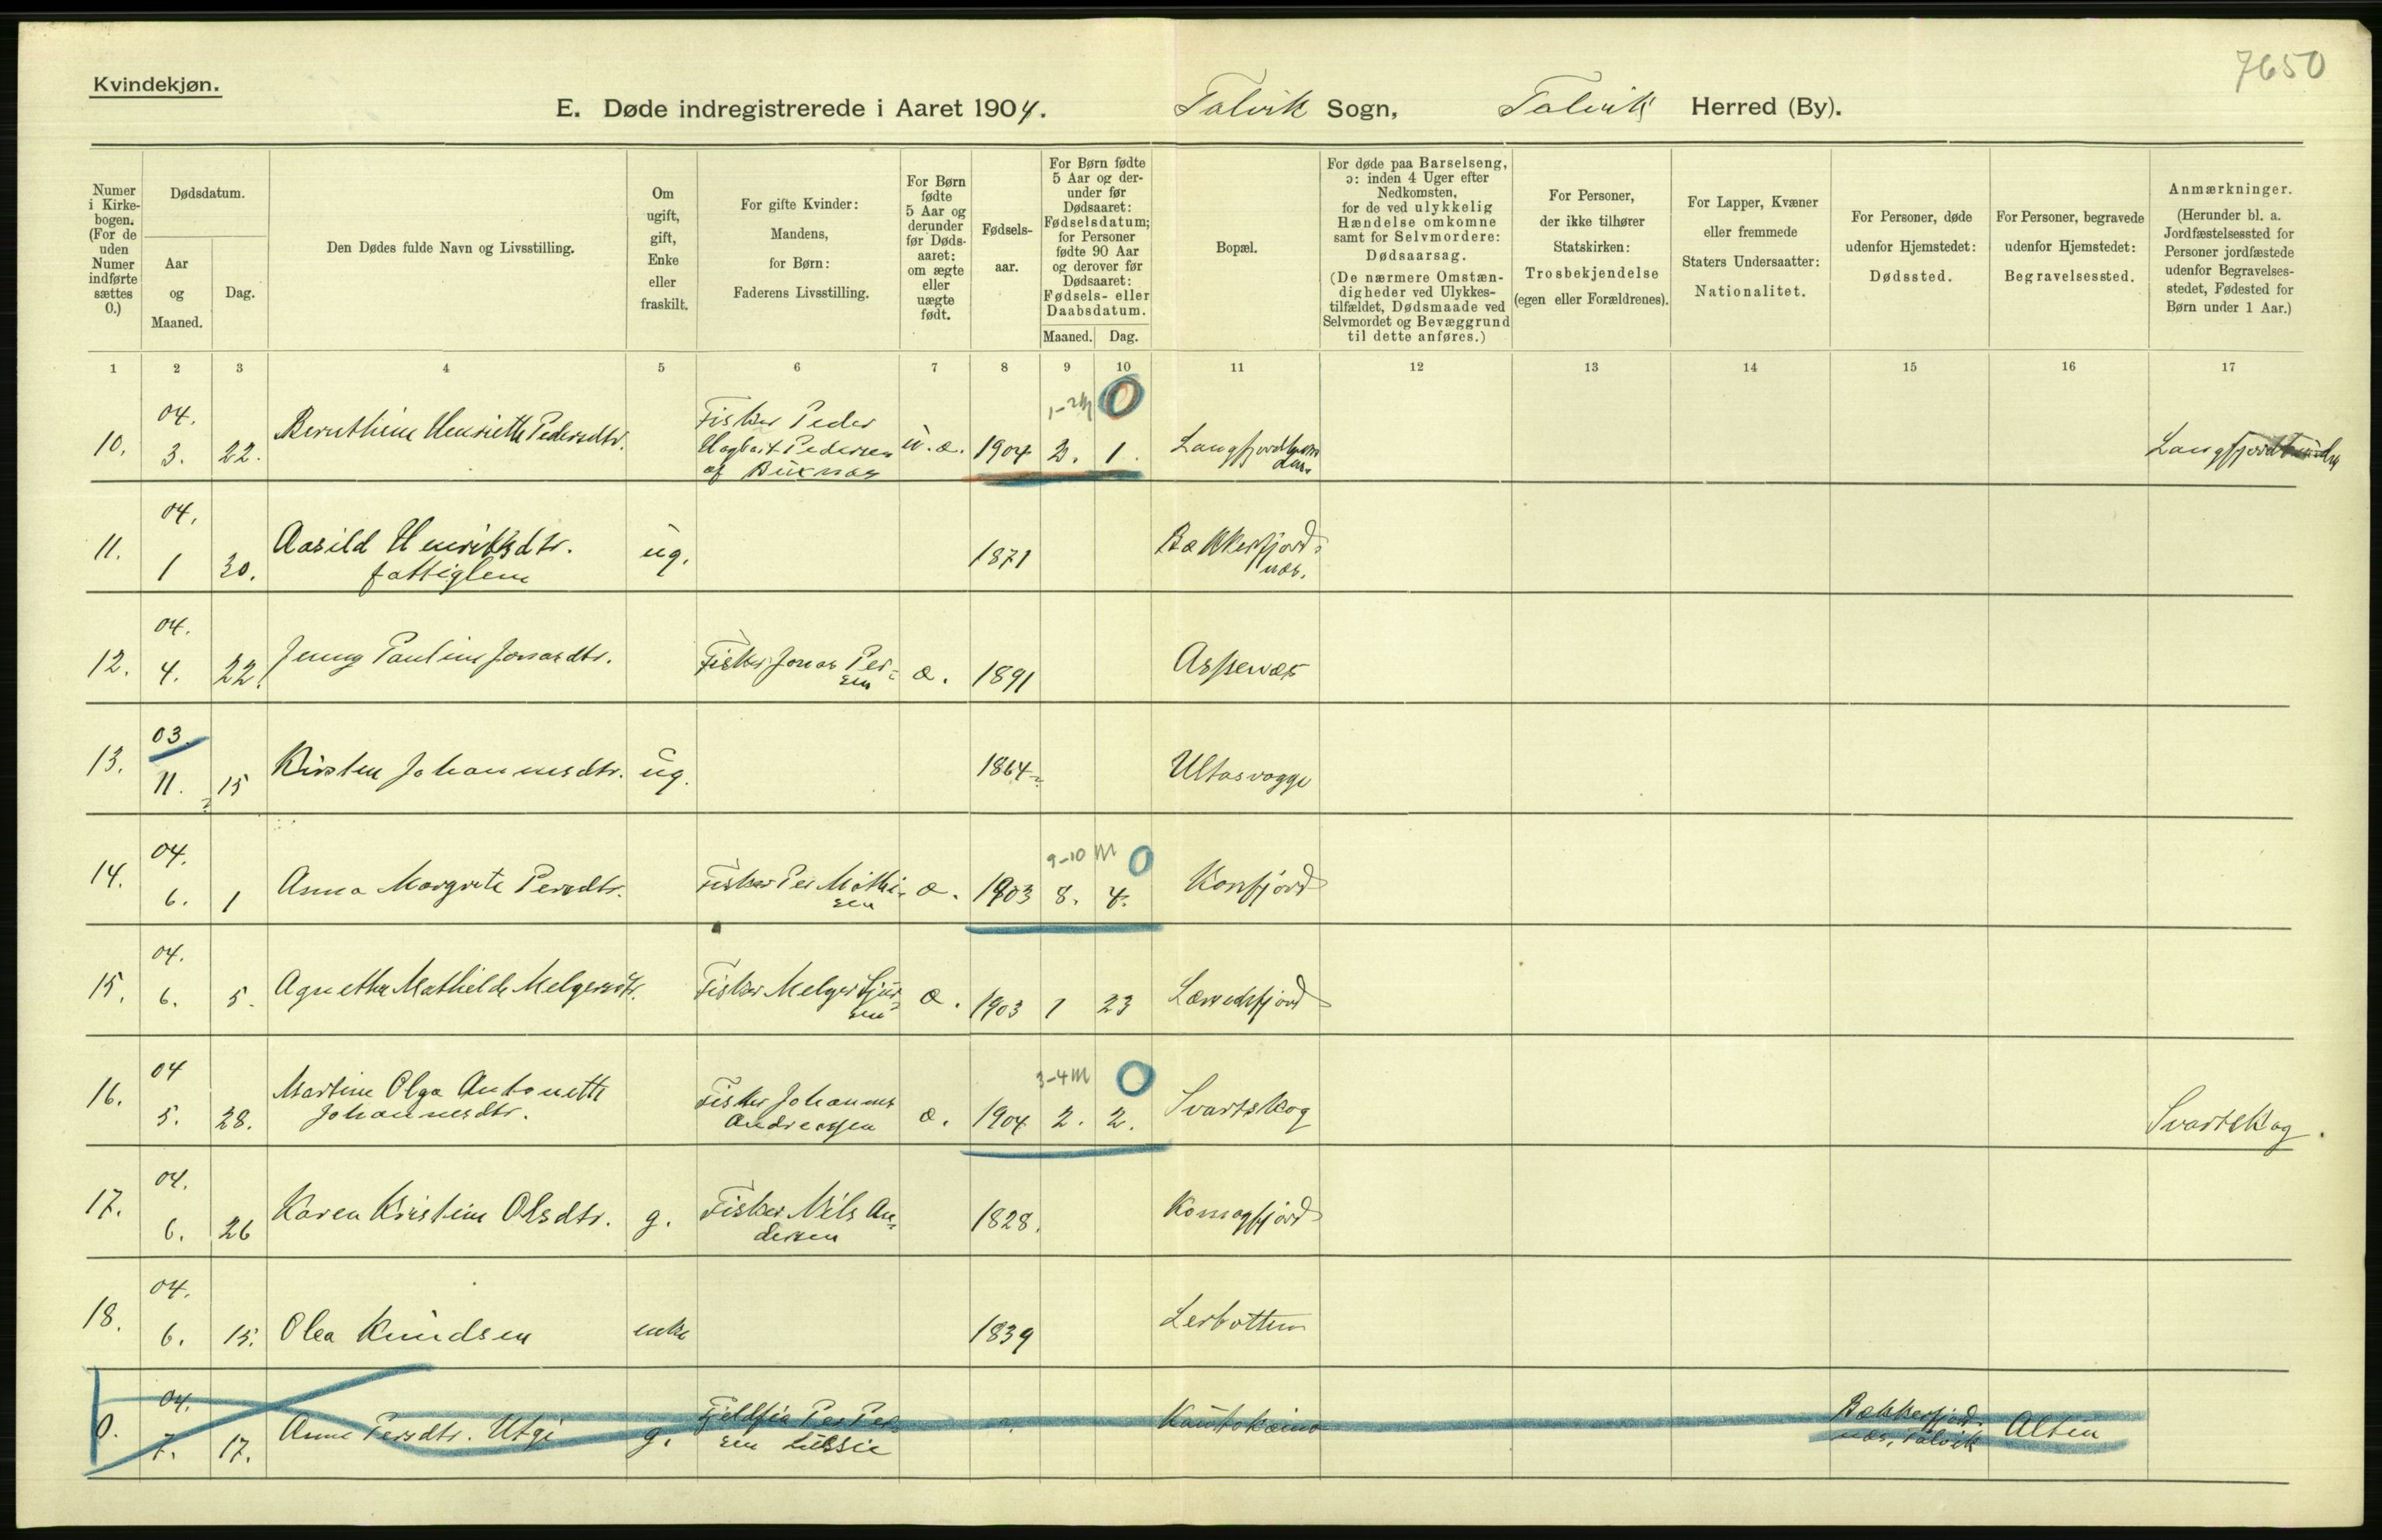 7650
Kvindekjøn.
E. Døde indregistrerede i Aaret 1904. Talvik Sogn, Talvik Herred (By).
Numer i Kirke-bogen. (For de uden Numer indførte sættes 0.)
Dødsdatum.
Aar og Maaned.
Dag.
Den Dødes fulde Navn og Livsstilling.
Om ugift, gift, Enke eller fraskilt.
For gifte Kvinder: Mandens, for Børn: Faderens Livsstilling.
For Børn fødte 5 Aar og derunder før Døds-aaret: om ægte eller uægte født.
Fødsels-aar.
For Børn fødte 5 Aar og der-under før Dødsaaret: Fødselsdatum; for Personer fødte 90 Aar og derover før Dødsaaret: Fødsels- eller Daabsdatum.
Maaned. Dag.
Bopæl.
For døde paa Barselseng, ɔ: inden 4 Uger efter Nedkomsten, for de ved ulykkelig Hændelse omkomne samt for Selvmordere: Dødsaarsag. (De nærmere Omstæn-digheder ved Ulykkes-tilfældet, Dødsmaade ved Selvmordet og Bevæggrund til dette anføres.)
For Personer, der ikke tilhører Statskirken: Trosbekjendelse (egen eller Forældrenes).
For Lapper, Kvæner eller fremmede Staters Undersaatter: Nationalitet.
For Personer, døde udenfor Hjemstedet: Dødssted.
For Personer, begravede udenfor Hjemstedet: Begravelsessted.
Anmærkninger. (Herunder bl. a. Jordfæstelsessted for Personer jordfæstede udenfor Begravelses-stedet, Fødested for Børn under 1 Aar.)
1 2 3 4 5 6 7 8 9 10 11 12 13 14 15 16 17
10. 04. 3. 22. Bernthine Henriette Pedersdtr. Fisker Peder Hagbart Pedersen af Buxnæs u.æ. 1904 2. 1. 1-2 M 0
11. 04. 1 30. Aasild Henriksdtr. fattiglem ug. 1871 Bækkerfjord-næs.
12. 04. 4. 22. Jenny Pauline Jonasdtr. Fisker Jonas Per-sen æ. 1891 Aspenæs
13. 03. 11. 15 Kirsten Johannesdtr. ug. 1864 Ultasvagge
14. 04. 6. 1 Anna Margrete Persdtr. Fisker Per Mathi-sen æ. 1903 8. 4. 9-10 M 0 Korsfjord
15. 04. 6. 5. Agnethe Mathilde Melgersdtr. Fisker Melger Sjur-sen æ. 1903 1 23
16. 04 5. 28. Martine Olga Antonette Johannesdtr. Fisker Johannes Andreassen æ. 1904 2. 2. 3-4 M 0 Svartskog Svartskog.
17. 04. 6. 26 Karen Kristine Olsdtr. g. Fisker Nils An-dersen 1828. Komagfjord
18. 04. 6. 15. Olea Knudsen enke 1839 Lerbotten
0. 04. 7. 17. Anne Persdtr. Utsi g. Fjeldfin Per Per-sen Kautokeino Bækkerfjord-næs, Talvik Alten